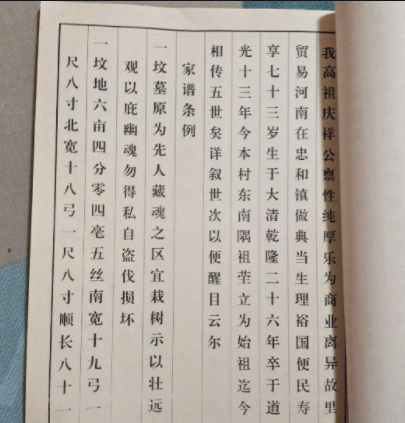 我高祖庆祥公禀性纯厚乐为商业离异故里
贸易河南在忠和镇做典当生理裕国便民寿
享七十三岁生于大清乾隆二十六年卒于道
光十三年今本村东南隅祖茔立为始祖迄今
相传五世矣详叙世次以便醒目云尔
家谱条例
一坟墓原为先人藏魂之区宜栽树示以壮远
观以庇幽魂勿得私自盗伐损坏
一坟地六亩四分零四毫五丝南宽十九弓一
尺八寸北宽十八弓一尺八寸顺长八十一